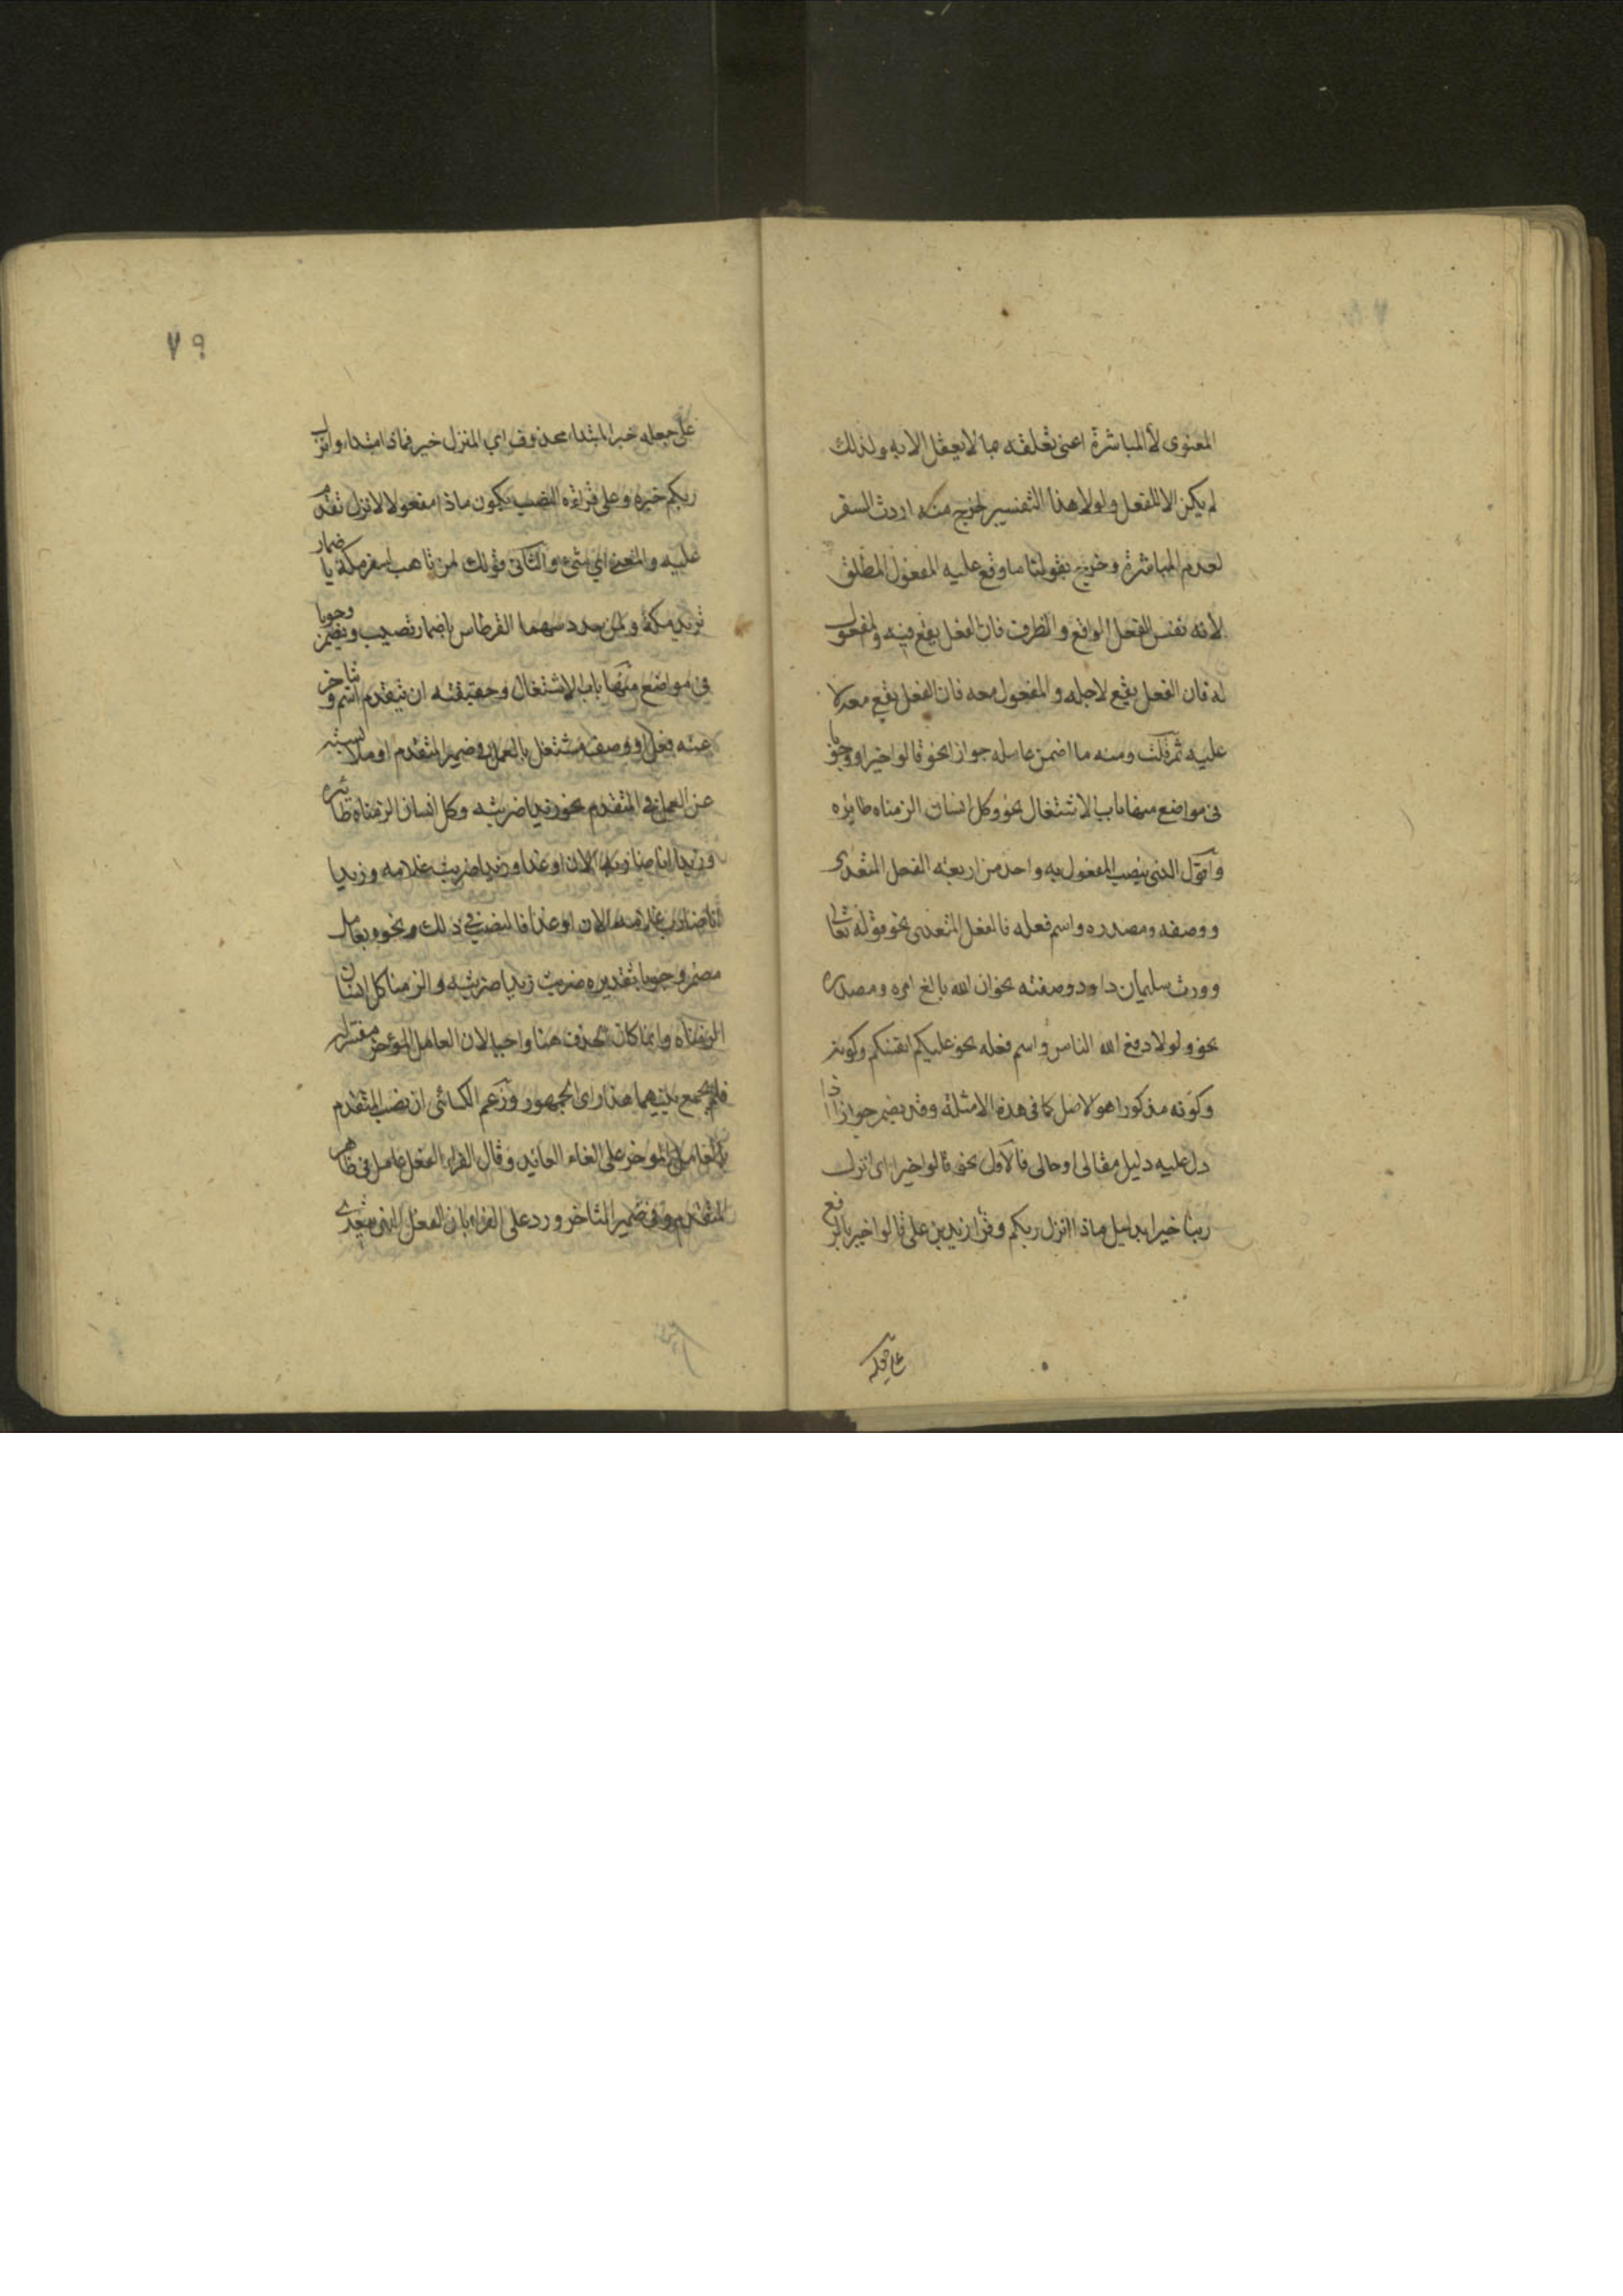 المعنوى لا المباشرة اعنى تعلقه بما لا يعقل الا به ولذلك
لم يكن الا للفعل ولولا هذا التفسير لخرج منه اردت السفر
لعدم المباشرة وخرج بقولنا ما وقع عليه المفعول المطلق
لأنه نفس الفعل الواقع والظرف فان الفعل يقع فيه والمفعول
له فان الفعل يقع لاجله والمفعول معه فان الفعل يقع معه لا
عليه ثم قلت ومنه ما اضمر عامله جوازا نحو قالوا خيرا ووجوبا
فى مواضع منها باب الاشتغال نحو وكل انسان الزمناه طايره
واقول الذى ينصب المفعول به واحد من اربعة الفعل المتعدى
ووصفه ومصدره واسم فعله فالفعل المتعدى نحو قوله تعالى
وورث سليمان داود وصفته نحو ان الله بالغ امره ومصدره
نحو ولولا دفع الله الناس واسم فعله نحو عليكم انفسكم وكونه
وكونه مذكورا هو الاصل كما فى هذه الامثلة وقد يضمر جوازا اذا
دل عليه دليل مقالى او حالى فالاول نحو قالوا خيرا اى انزل
ربنا خيرا بدليل ماذا انزل ربكم وقرا زيد بن على قالوا خير بالرفع
على جعله
٧٩
على جعله خبرا لمبتداء محذوف اى المنزل خير فماذا مبتداء وانزل
ربكم خبره وعلى قراءة النصب يكون ماذا مفعولا لانزل تقدم
عليه والمعنى اي شىء والثانى قولك لمن تاهب لسفر مكة باضمار
تريد مكة ولمن سدد سهما القرطاس باضمار تصيب ويضمر وجوبا
فى مواضع منها باب الاشتغال وحقيقته ان يتقدم اسم وتاخر
عنه فعل او وصف مشتغل بالعمل فى ضمير المتقدم او ملابسته
عن العمل فى المتقدم نحو زيدا ضربته وكل انسان الزمناه طائره
وزيدا انا ضاربه الان او غدا وزيدا ضربت غلامه وزيدا
انا ضارب غلامه الان او غدا فالنصب في ذلك ونحوه بعامل
مضمر وجوبا تقديره ضربت زيدا ضربته والزمنا كل انسان
الزمناه وانما كان الحذف هنا واجبا لان العامل المؤخر مفسر له
فلم يجمع بينهما هذا راى الجمهور وزعم الكسائى ان نصب المتقدم
بالعامل المؤخر على الغاء العائد وقال الفراء الفعل عامل فى ظاهر
المتقدم وفى ضمير المتاخر ورد على الفراء بان الفعل الذى يتعدى